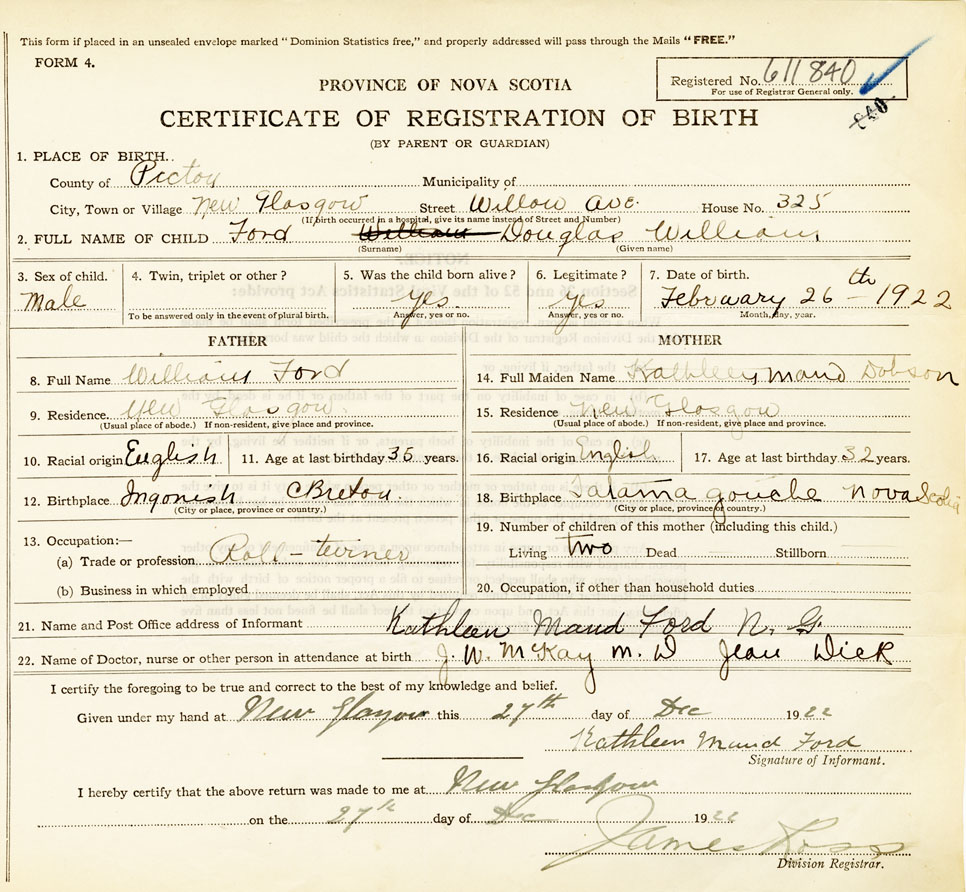 This form if placed in an unsealed envelope marked "Dominion Statistics free," and properly addressed will pass through the Mails "FREE."
FORM 4.
Registered No. 611840
For use of Registrar General only.
840
PROVINCE OF NOVA SCOTIA
CERTIFICATE OF REGISTRATION OF BIRTH
(BY PARENT OR GUARDIAN)
1. PLACE OF BIRTH.
County of Pictou Municipality of
City, Town or Village New Glasgow Street Willow Ave. House No. 325
(If birth occurred in a hospital, give its name instead of Street and Number)
2. FULL NAME OF CHILD Ford William Douglas William
(Surname) (Given name)
3. Sex of child. 4. Twin, triplet or other? 5. Was the child born alive? 6. Legitimate? 7. Date of birth.
Male Yes Yes February 26th - 1922
To be answered only in the event of plural birth. Answer, yes or no. Answer, yes or no. Month, day, year.
FATHER MOTHER
8. Full Name William Ford 14. Full Maiden Name Kathleen Maud Dobson
9. Residence New Glasgow 15. Residence New Glasgow
(Usual place of abode.) If non-resident, give place and province. (Usual place of abode.) If non-resident, give place and province.
10. Racial origin English 11. Age at last birthday 35 years. 16. Racial origin English 17. Age at last birthday 32 years.
12. Birthplace Ingonish C Breton. 18. Birthplace Tatama gouche Nova Scotia
(City or place, province or country.) (City or place, province or country.)
13. Occupation:— 19. Number of children of this mother (including this child.)
(a) Trade or profession Roll-turner Living two Dead Stillborn
(b) Business in which employed 20. Occupation, if other than household duties
21. Name and Post Office address of Informant Kathleen Maud Ford N. G.
22. Name of Doctor, nurse or other person in attendance at birth J. W. McKay M. D Jean Dick
I certify the foregoing to be true and correct to the best of my knowledge and belief.
Given under my hand at New Glasgow this 27th day of Dec 1922
Kathleen Maud Ford
Signature of Informant.
I hereby certify that the above return was made to me at New Glasgow
on the 27th day of Dec 1922
James Ross
Division Registrar.